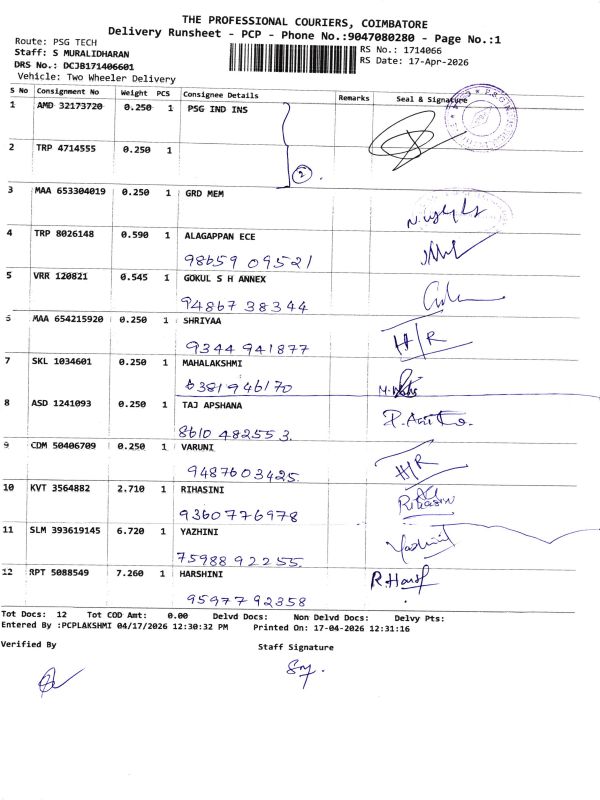 THE PROFESSIONAL COURIERS, COIMBATORE
Delivery Runsheet - PCP - Phone No.:9047080280 - Page No.:1
Route: PSG TECH
Staff: S MURALIDHARAN
DRS No.: DCJB171406601
Vehicle: Two Wheeler Delivery
RS No.: 1714066
RS Date: 17-Apr-2026
S No Consignment No Weight PCS Consignee Details Remarks Seal & Signature
1 AMD 32173720 0.250 1 PSG IND INS
2 TRP 4714555 0.250 1
2
3 MAA 653304019 0.250 1 GRD MEM
4 TRP 8026148 0.590 1 ALAGAPPAN ECE
98659 09521
5 VRR 120821 0.545 1 GOKUL S H ANNEX
94867 38344
6 MAA 654215920 0.250 1 SHRIYAA
9344 941877 H/R
7 SKL 1034601 0.250 1 MAHALAKSHMI
6381946170
8 ASD 1241093 0.250 1 TAJ APSHANA
8610 482553.
9 CDM 50406709 0.250 1 VARUNI
9487603425 H/R
10 KVT 3564882 2.710 1 RIHASINI
9360776978
11 SLM 393619145 6.720 1 YAZHINI
75988 92255
12 RPT 5088549 7.260 1 HARSHINI
9597792358
Tot Docs: 12 Tot COD Amt: 0.00 Delvd Docs: Non Delvd Docs: Delvy Pts:
Entered By :PCPLAKSHMI 04/17/2026 12:30:32 PM Printed On: 17-04-2026 12:31:16
Verified By Staff Signature